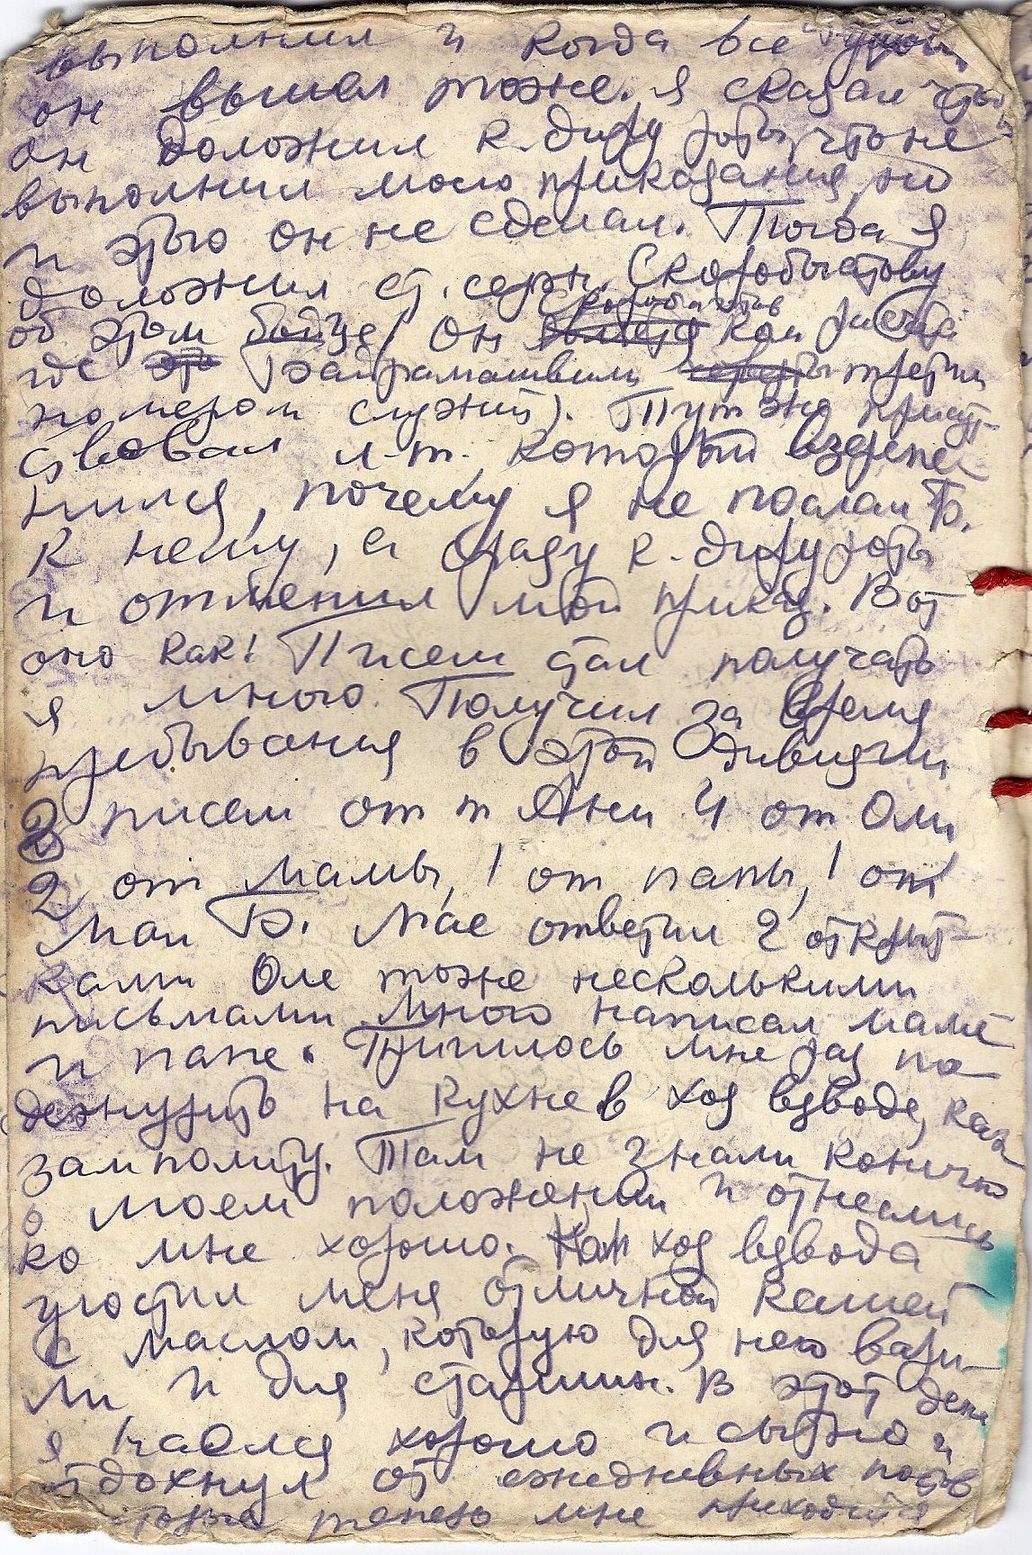 выполнил и когда все
он вышел тоже. я сказал чтобы
он доложил к-диру роты, что не
выполнил моего приказания, но
и этого он не сделал. Тогда я
доложил ст. серж. Скоробыстову
об этом бойце (он
Скоробыстов
ком расчёта
где это Байрамашвили третьим
номером служит). Тут же присут-
ствовал л-т. который взъерепе-
нился, почему я не послал Б.
к нему, а сразу к-диру роты
и отменил мой приказ. Вот
оно как! Писем стал получать
я много. Получил за время
пребывания в этой дивизии
2 писем от т Ани 4 от Оли
2 от мамы, 1 от папы, 1 от
Маи Б. Мае ответил 2 открыт-
ками Оле тоже несколькими
письмами Много написал маме
и папе. Пришлось мне раз по-
дежурить на кухне в хоз взводе, как
замполиту. Там не знали конечно
о моем положении и отнеслись
ко мне хорошо. Ком хоз взвода
угостил меня отличной кашей
с маслом, которую для него вари-
ли и для старшин. В этот день
я наелся хорошо и сытно и
отдохнул от ежедневных
теперь мне приходится